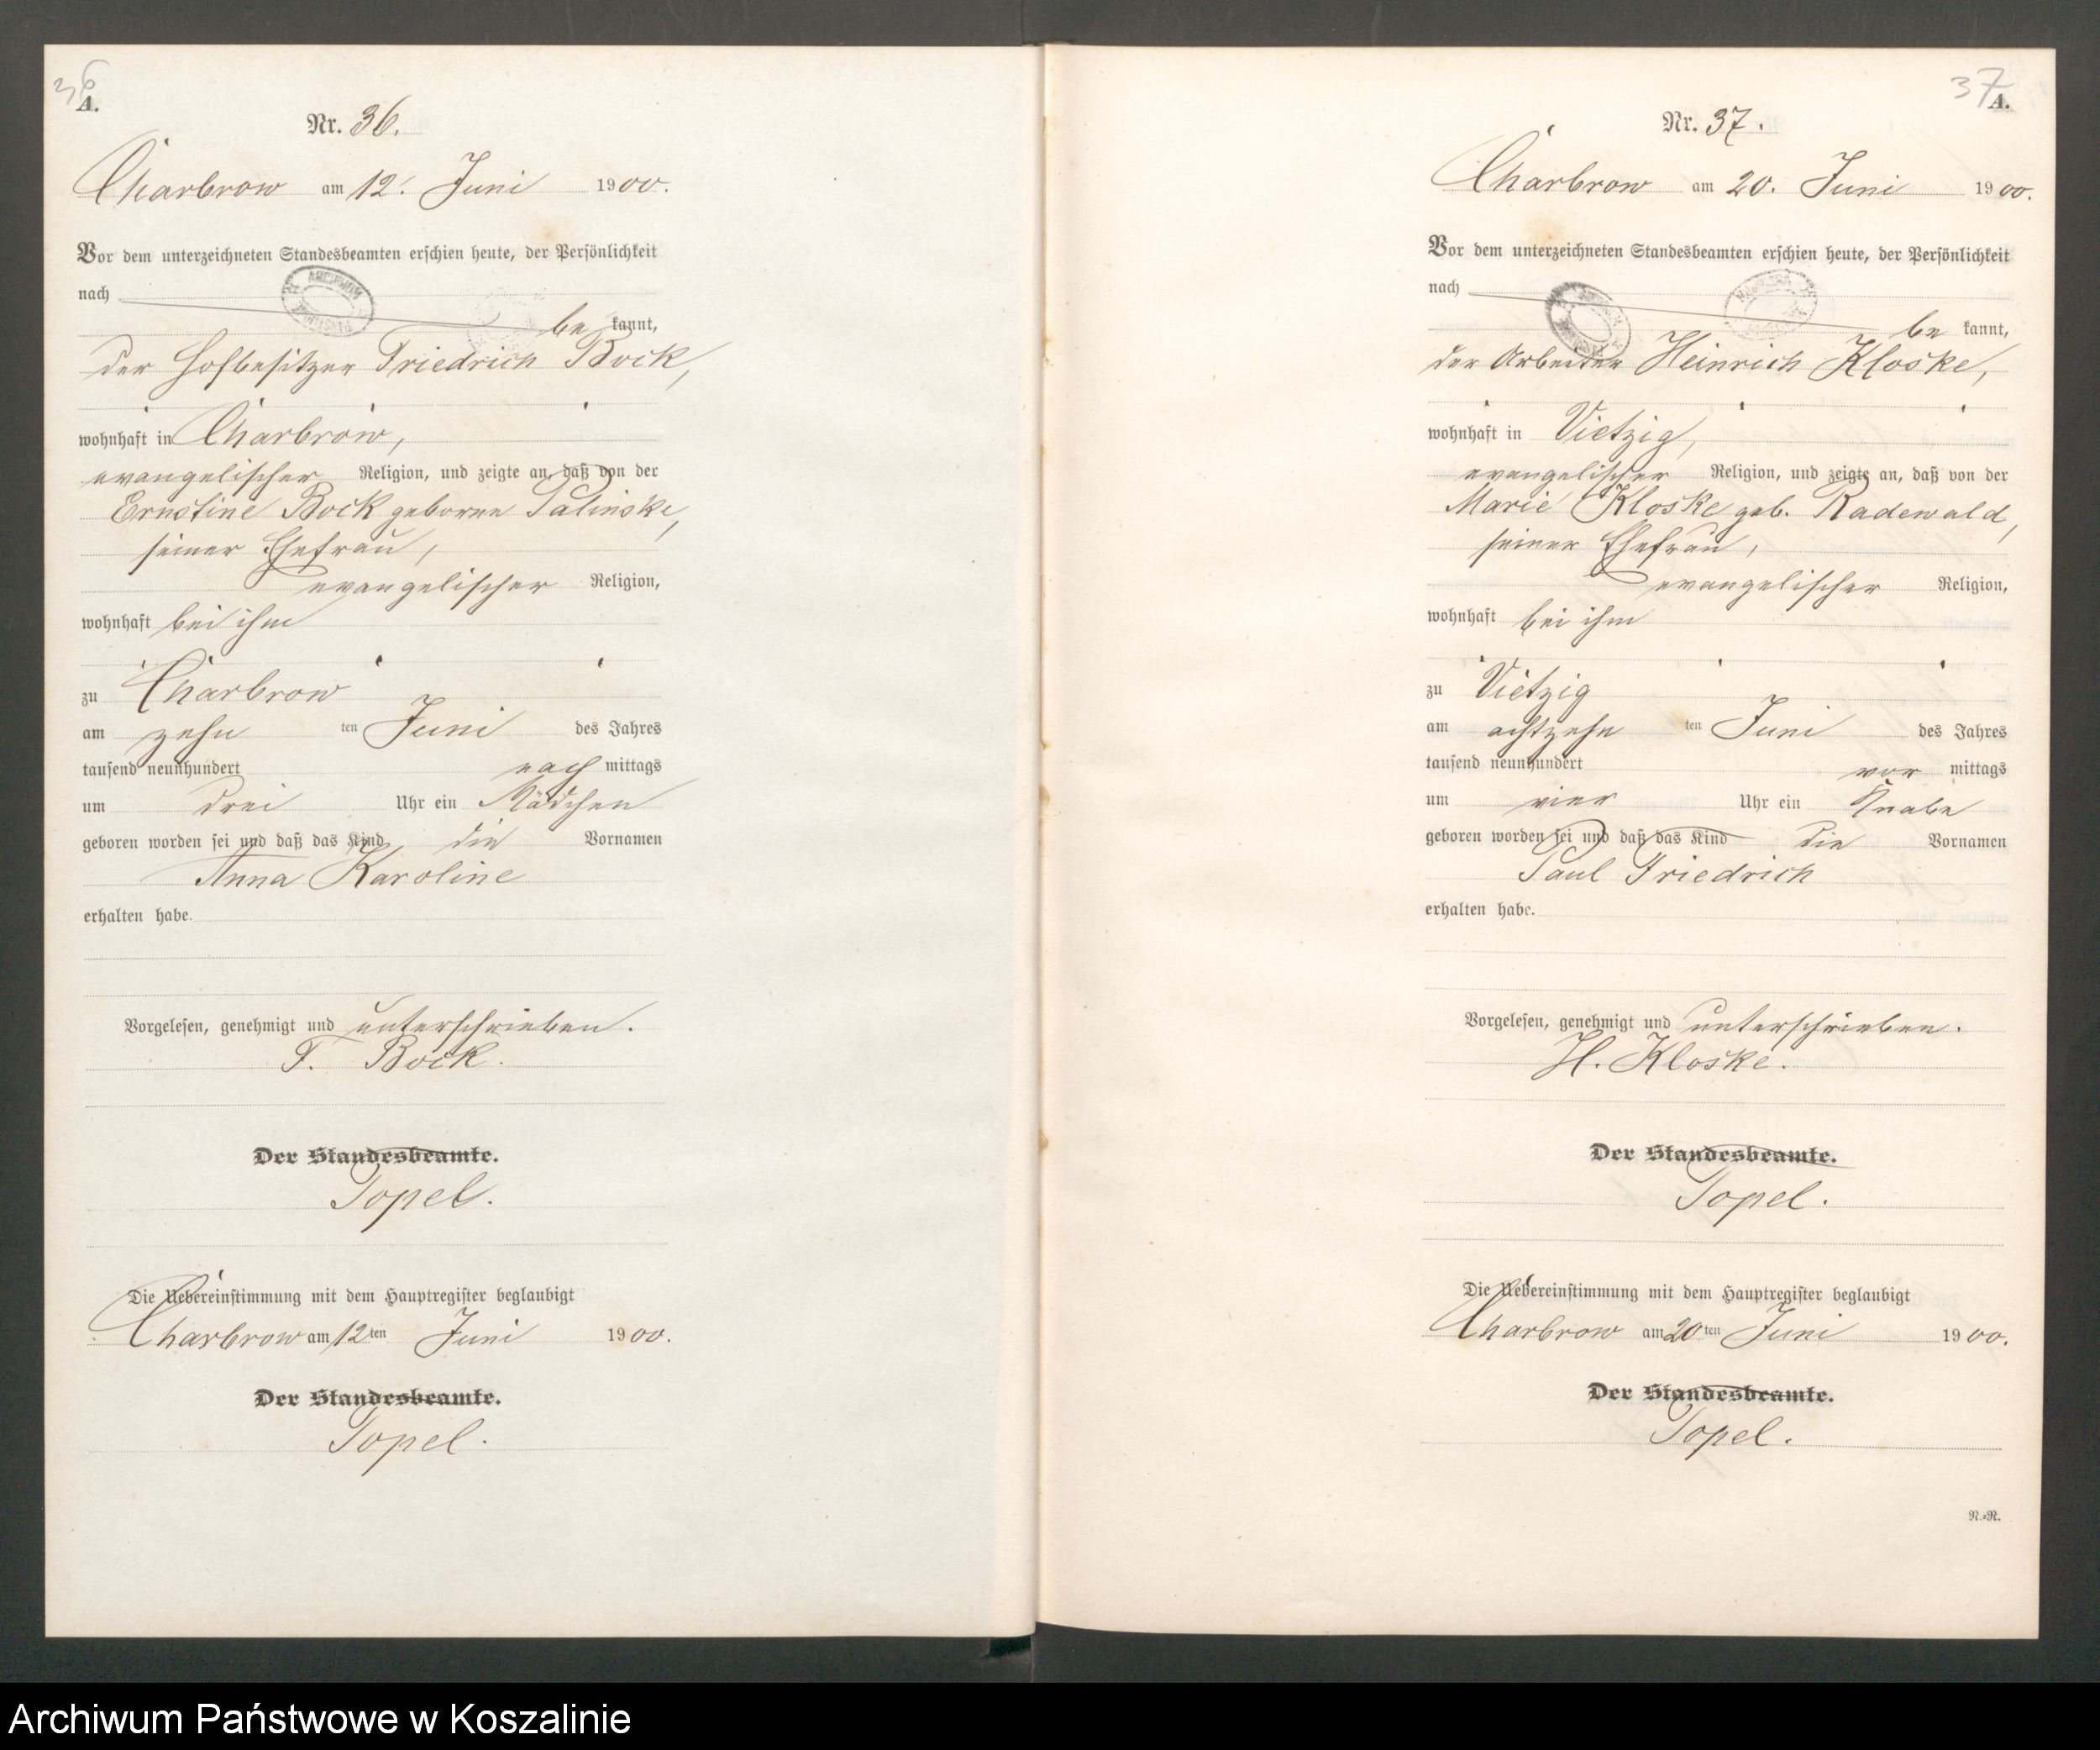 36
A.
Nr. 36.
Charbrow am 12. Juni 1900.
Vor dem unterzeichneten Standesbeamten erschien heute, der Persönlichkeit
nach
be kannt,
der Hofbesitzer Friedrich Bock,
wohnhaft in Charbrow,
evangelischer Religion, und zeigte an, daß von der
Ernstine Bock geborne Palinske,
seiner Ehefrau,
evangelischer Religion,
wohnhaft bei ihm
zu Charbrow
am zehn ten Juni des Jahres
tausend neunhundert nach mittags
um drei Uhr ein Mädchen
geboren worden sei und daß das Kind die Vornamen
Anna Karoline
erhalten habe.
Vorgelesen, genehmigt und unterschrieben.
F. Bock.
Der Standesbeamte.
Topel.
Die Uebereinstimmung mit dem Hauptregister beglaubigt
Charbrow am 12ten Juni 1900.
Der Standesbeamte.
Topel.
37
A.
Nr. 37.
Charbrow am 20. Juni 1900.
Vor dem unterzeichneten Standesbeamten erschien heute, der Persönlichkeit
nach
be kannt,
der Arbeiter Heinrich Kloske,
wohnhaft in Vietzig,
evangelischer Religion, und zeigte an, daß von der
Marie Kloske geb. Radewald,
seiner Ehefrau,
evangelischer Religion,
wohnhaft bei ihm
zu Vietzig
am achtzehn ten Juni des Jahres
tausend neunhundert vor mittags
um vier Uhr ein Knabe
geboren worden sei und daß das Kind die Vornamen
Paul Friedrich
erhalten habe.
Vorgelesen, genehmigt und unterschrieben.
H. Kloske.
Der Standesbeamte.
Topel.
Die Uebereinstimmung mit dem Hauptregister beglaubigt
Charbrow am 20ten Juni 1900.
Der Standesbeamte.
Topel.
N.=R.
Archiwum Państwowe w Koszalinie